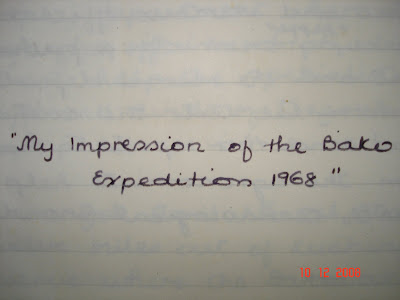 "My Impression of the Bako
Expedition 1968"